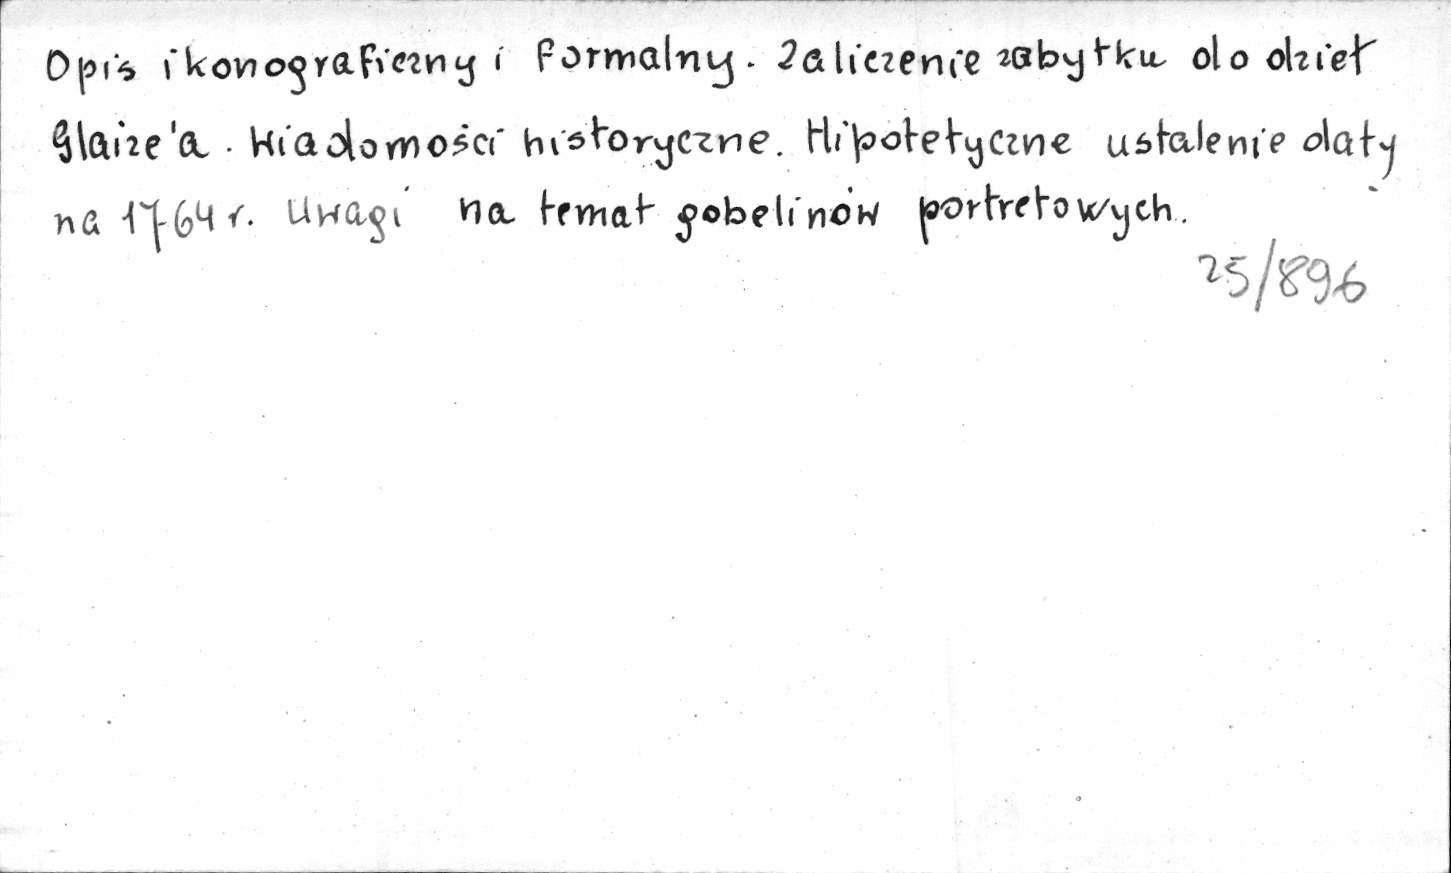 Opis ikonograficzny i formalny. Zaliczenie zabytku do dzieł
Glaize'a. Wiadomości historyczne. Hipotetyczne ustalenie daty
na 1764 r. Uwagi na temat gobelinów portretowych.
25/896